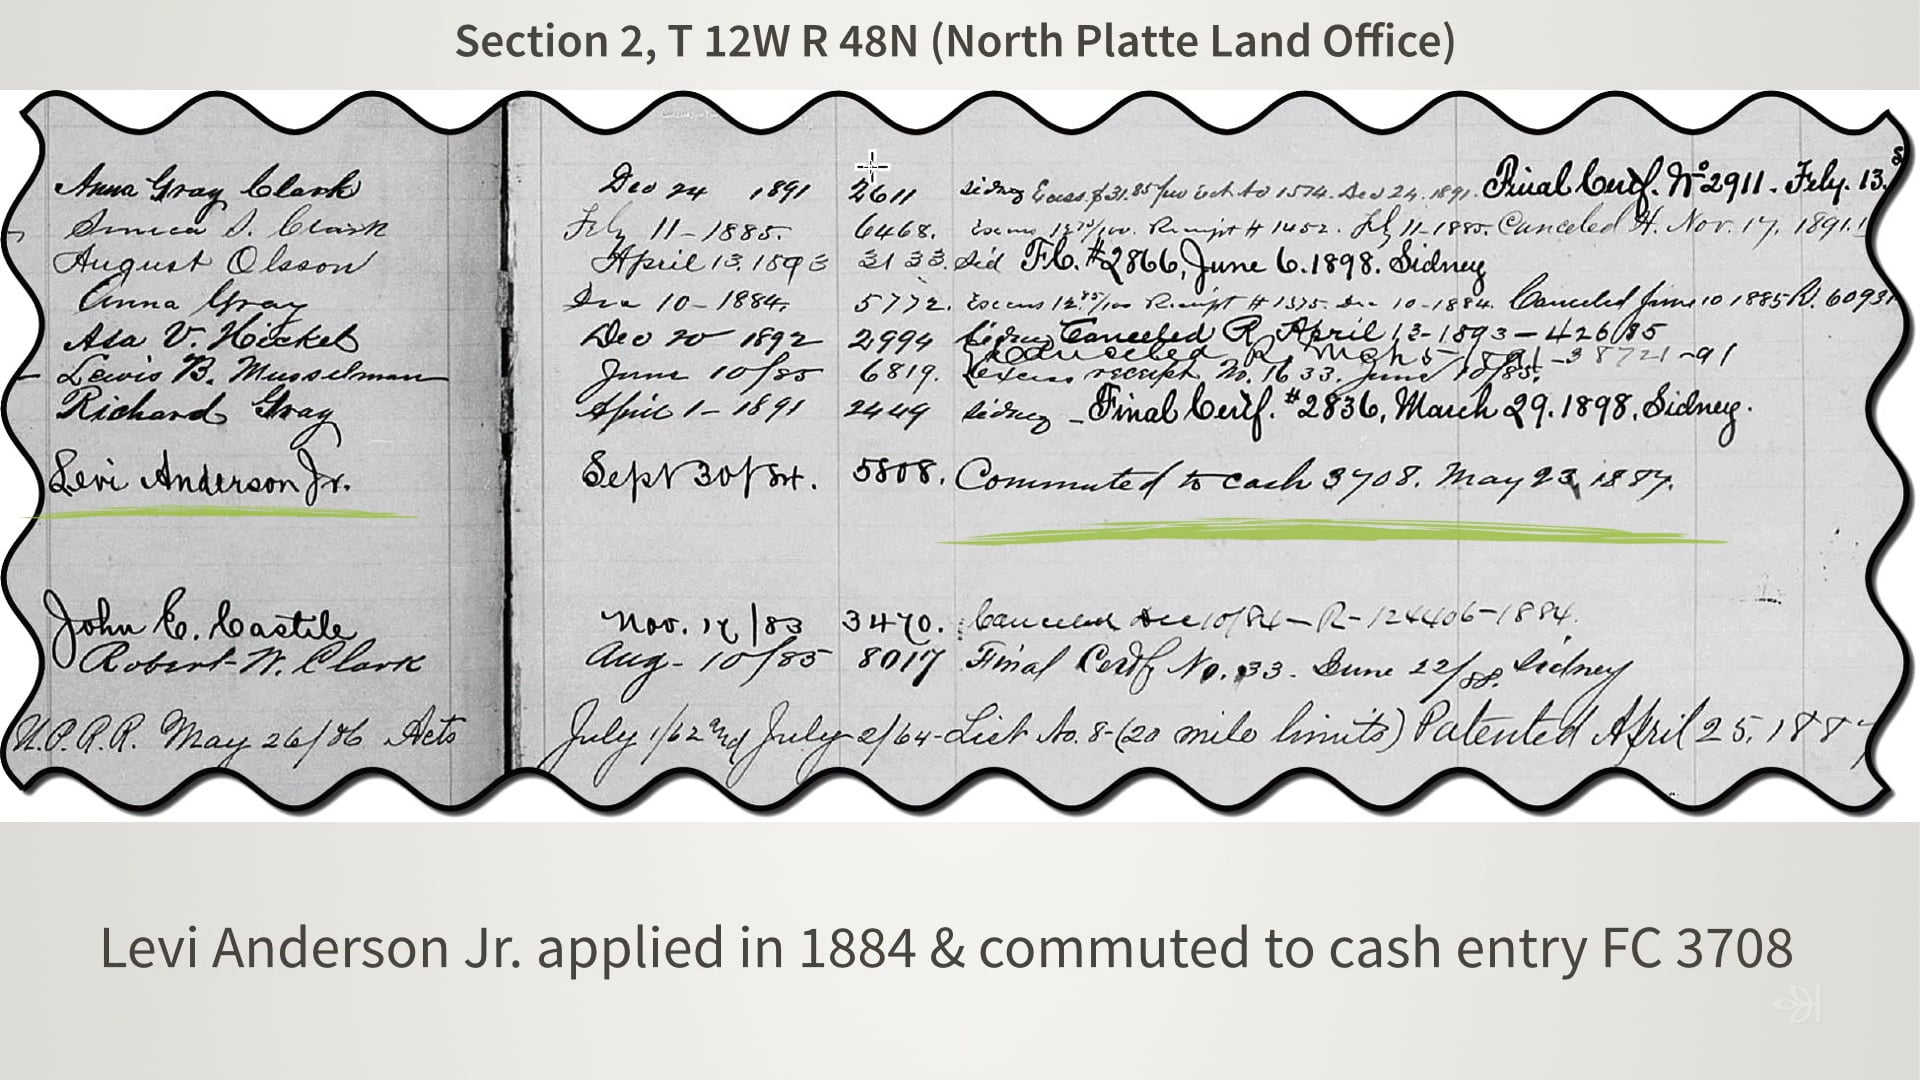 Section 2, T 12W R 48N (North Platte Land Office)
Anna Gray Clark Dec 24 1891 2611 Sidney Excess $31.85/100 Rct No 1574. Dec 24, 1891. Final Certf. No 2911. Feby. 13.
S. Clark Feby 11-1885. 6468. Excess /100. Receipt # 1452. Feby 11-1885. Canceled H. Nov. 17, 1891.
August Olsson April 13. 1893 3133. Sid F.C. #2866, June 6. 1898. Sidney
Anna Gray Dec 10-1884. 5772. Excess 12 85/100 Receipt # 1375. Dec 10-1884. Canceled June 10 1885 R. 6093
Asa V. Hickel Dec 20 1892 2994 Sidney Canceled R April 13-1893-42685
Canceled R. Mch 5-1891-38721-91
Lewis B. Musselman June 10/85 6819. Excess receipt No. 1633. June 10/85.
Richard Gray April 1-1891 2449 Sidney - Final Certf. #2836, March 29. 1898, Sidney.
Levi Anderson Jr. Sept 30/84. 5808. Commuted to cash 3708. May 23, 1887.
John C. Castile Nov. 17/83 3470. Canceled Dec 10/84-R-124406-1884.
Robert W. Clark Aug-10/85 8017 Final Certf No. 33. June 22/88. Sidney
U.P.R.R. May 26/86 Acts July 1/62 and July 2/64-List No. 8-(20 mile limits) Patented April 25, 1887
Levi Anderson Jr. applied in 1884 & commuted to cash entry FC 3708